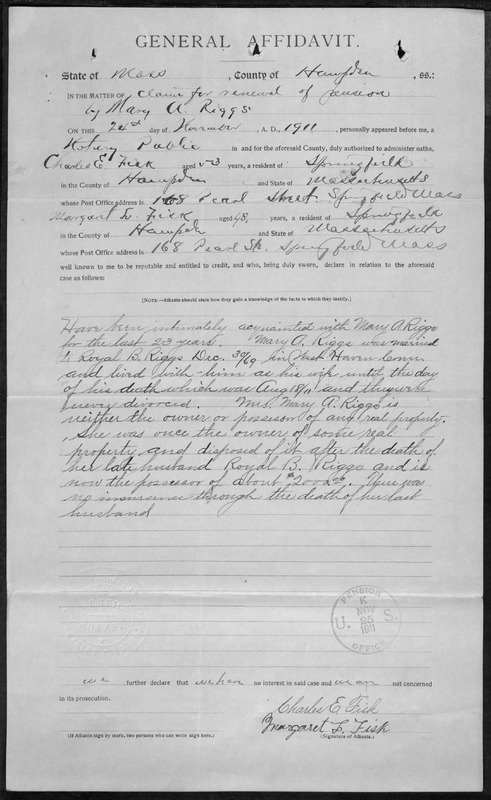 GENERAL AFFIDAVIT.
State of Mass, County of Hampden, ss.:
IN THE MATTER OF claim for renewal of pension
by Mary A. Riggs
ON THIS 24th day of November, A. D., 1911, personally appeared before me, a
Notary Public in and for the aforesaid County, duly authorized to administer oaths,
Charles E. Fisk aged 53 years, a resident of Springfield
in the County of Hampden and State of Massachusetts
whose Post Office address is 168 Pearl Street Springfield Mass
Margaret L. Fisk aged 48, years, a resident of Springfield
in the County of Hampden and State of Massachusetts
whose Post Office address is 168 Pearl St. Springfield Mass
well known to me to be reputable and entitled to credit, and who, being duly sworn, declare in relation to the aforesaid
case as follows:
[NOTE.—Affiants should state how they gain a knowledge of the facts to which they testify.]
Have been intimately acquainted with Mary A Riggs
for the last 23 years. Mary A. Riggs was married
to Royal B. Riggs Dec. 30/69 in West Haven Conn
and lived with him as his wife until the day
of his death which was Aug 18/11 and they were
never divorced. Mrs. Mary A. Riggs is
neither the owner or possessor of any real property.
She was once the owner of some real
property and disposed of it after the death of
her late husband Royal B. Riggs and is
now the possessor of about $200.00. There was
no insurance through the death of her last
husband
PENSION
K
NOV
25
1911
U. S.
OFFICE
we further declare that we have no interest in said case and we are not concerned
in its prosecution.
Charles E. Fisk
Margaret L. Fisk
(If Affiants sign by mark, two persons who can write sign here.)
(Signature of Affiants.)